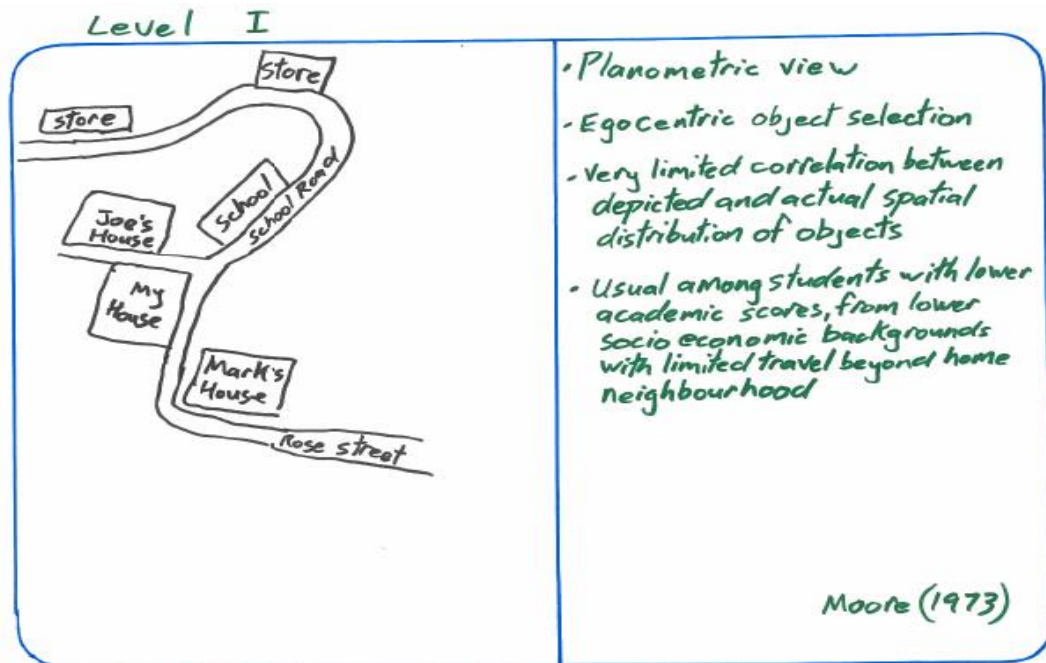 Level I
store
store
school
School Road
Joe's
House
My
House
Mark's
House
Rose street
· Planometric view
· Egocentric object selection
· Very limited correlation between
depicted and actual spatial
distribution of objects
· Usual among students with lower
academic scores, from lower
socio economic backgrounds
with limited travel beyond home
neighbourhood
Moore (1973)